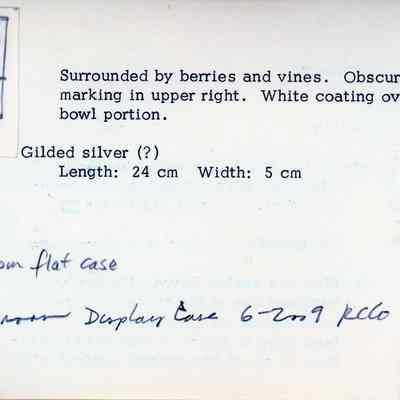 Surrounded by berries and vines. Obscur
marking in upper right. White coating ov
bowl portion.
Gilded silver (?)
Length: 24 cm Width: 5 cm
flat case
Display Case 6-2009